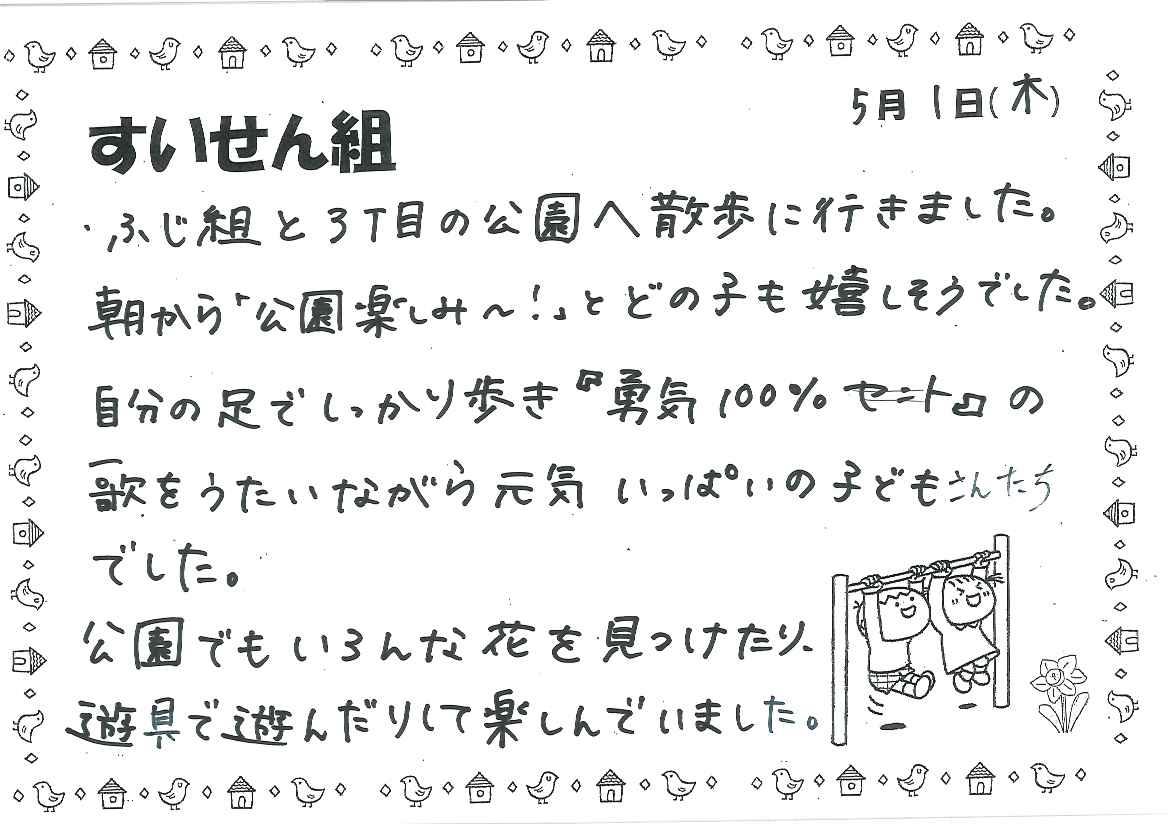 5月1日(木)
すいせん組
・ふじ組と3丁目の公園へ散歩に行きました。
朝から「公園楽しみ〜!」とどの子も嬉しそうでした。
自分の足でしっかり歩き『勇気100%セント』の
歌をうたいながら元気いっぱいの子どもさんたち
でした。
公園でもいろんな花を見つけたり、
遊具で遊んだりして楽しんでいました。